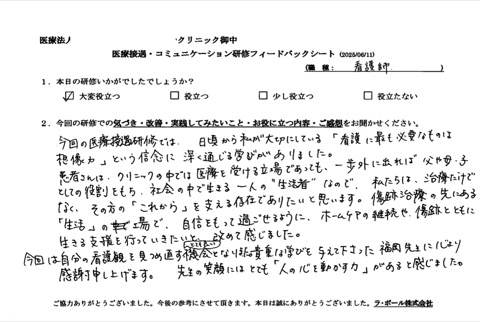 医療法人 クリニック御中
医療接遇・コミュニケーション研修フィードバックシート (2025/06/11)
(職 種： 看護師 )
1．本日の研修いかがでしたでしょうか？
☑ 大変役立つ □ 役立つ □ 少し役立つ □ 役立たない
2．今回の研修での気づき・改善・実践してみたいこと・お役に立つ内容・ご感想をお聞かせください。
今回の医療接遇研修では、日頃から私が大切にしている「看護に最も必要なものは
想像力」という信念に深く通じる学びがありました。
患者さんは、クリニックの中では医療を受ける立場であっても、一歩外に出れば父や母・子
としての役割をもち、社会の中で生きる一人の"生活者"なので、私たちは、治療だけで
なく、その方の「これから」を支える存在でありたいと思います。傷跡治療の先にある
"生活"の場で、自信をもって過ごせるように、ホームケアの継続や、傷跡とともに
生きる支援を行っていきたいと、改めて感じました。
今回は自分の看護観を見つめ直す機会となりました。貴重な学びを与えて下さった福岡先生に心より
感謝申し上げます。 先生の笑顔にはとても「人の心を動かす力」があると感じました。
ご協力ありがとうございました。今後の参考にさせて頂きます。本日は誠にありがとうございました。ラ・ポール株式会社